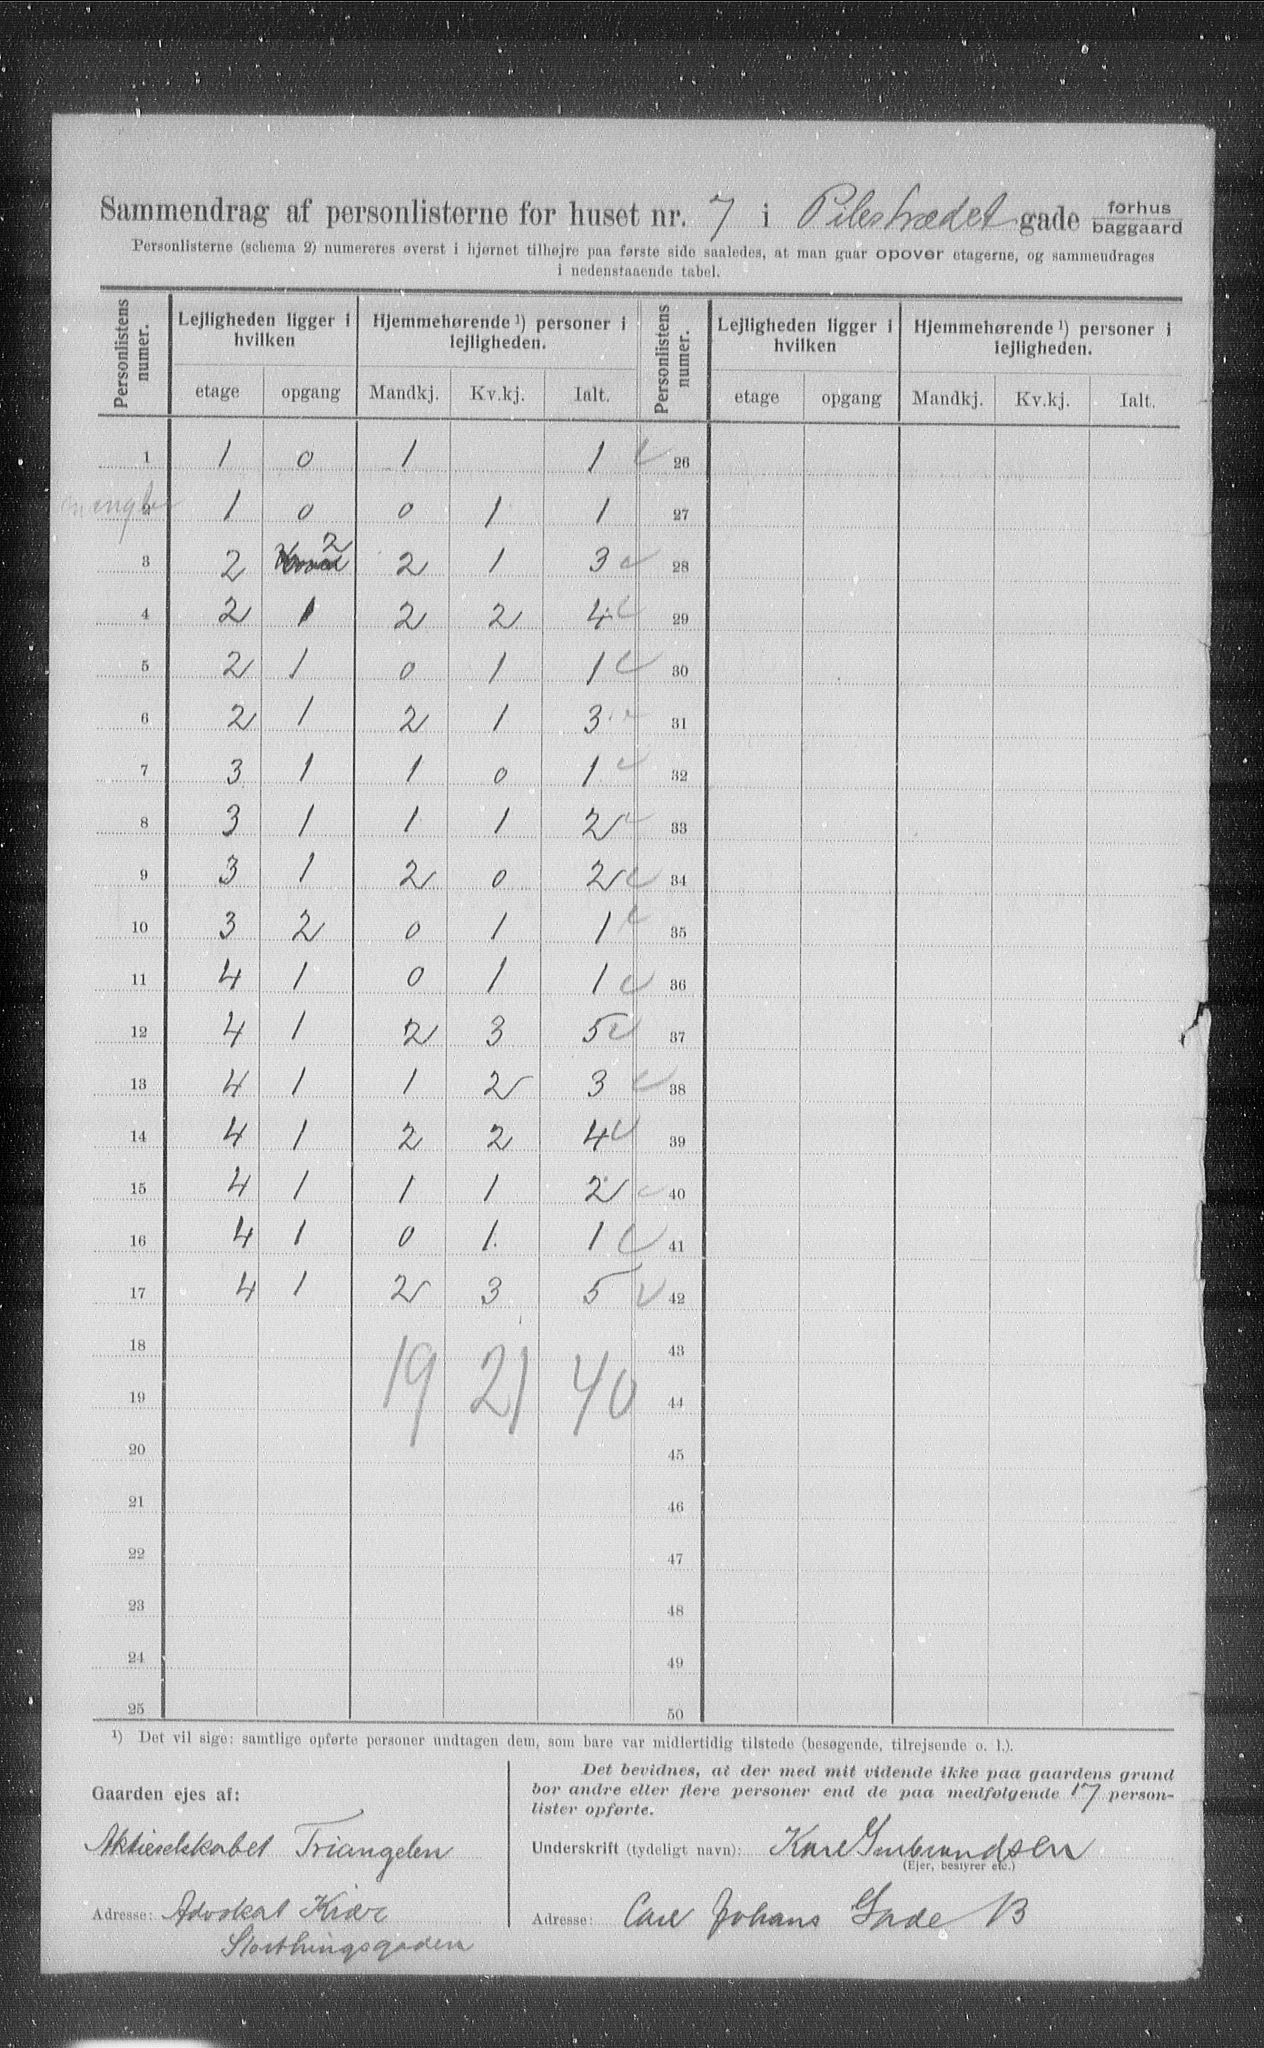 Sammendrag af personlisterne for huset nr. 7 i Pilestrædet gade forhus baggaard
Personlisterne (schema 2) numereres øverst i hjørnet tilhøjre paa første side saaledes, at man gaar opover etagerne, og sammendrages
i nedenstaaende tabel.
Personlistens numer. Lejligheden ligger i hvilken Hjemmehørende ¹) personer i lejligheden. Personlistens numer. Lejligheden ligger i hvilken Hjemmehørende ¹) personer i lejligheden.
etage opgang Mandkj. Kv.kj. Ialt. etage opgang Mandkj. Kv.kj. Ialt.
1 1 0 1 1 26
mangler 2 1 0 0 1 1 27
3 2 2 2 1 3 28
4 2 1 2 2 4 29
5 2 1 0 1 1 30
6 2 1 2 1 3 31
7 3 1 1 0 1 32
8 3 1 1 1 2 33
9 3 1 2 0 2 34
10 3 2 0 1 1 35
11 4 1 0 1 1 36
12 4 1 2 3 5 37
13 4 1 1 2 3 38
14 4 1 2 2 4 39
15 4 1 1 1 2 40
16 4 1 0 1 1 41
17 4 1 2 3 5 42
18 43
19 19 21 40 44
20 45
21 46
22 47
23 48
24 49
25 50
¹) Det vil sige: samtlige opførte personer undtagen dem, som bare var midlertidig tilstede (besøgende, tilrejsende o. l.).
Gaarden ejes af:
Aktieselskabet Triangelen
Adresse: Advokat Kiær
Storthingsgaden
Det bevidnes, at der med mit vidende ikke paa gaardens grund
bor andre eller flere personer end de paa medfølgende 17 person-
lister opførte.
Underskrift (tydeligt navn): Karl Gulbrandsen
(Ejer, bestyrer etc.)
Adresse: Carl Johans Gade 13